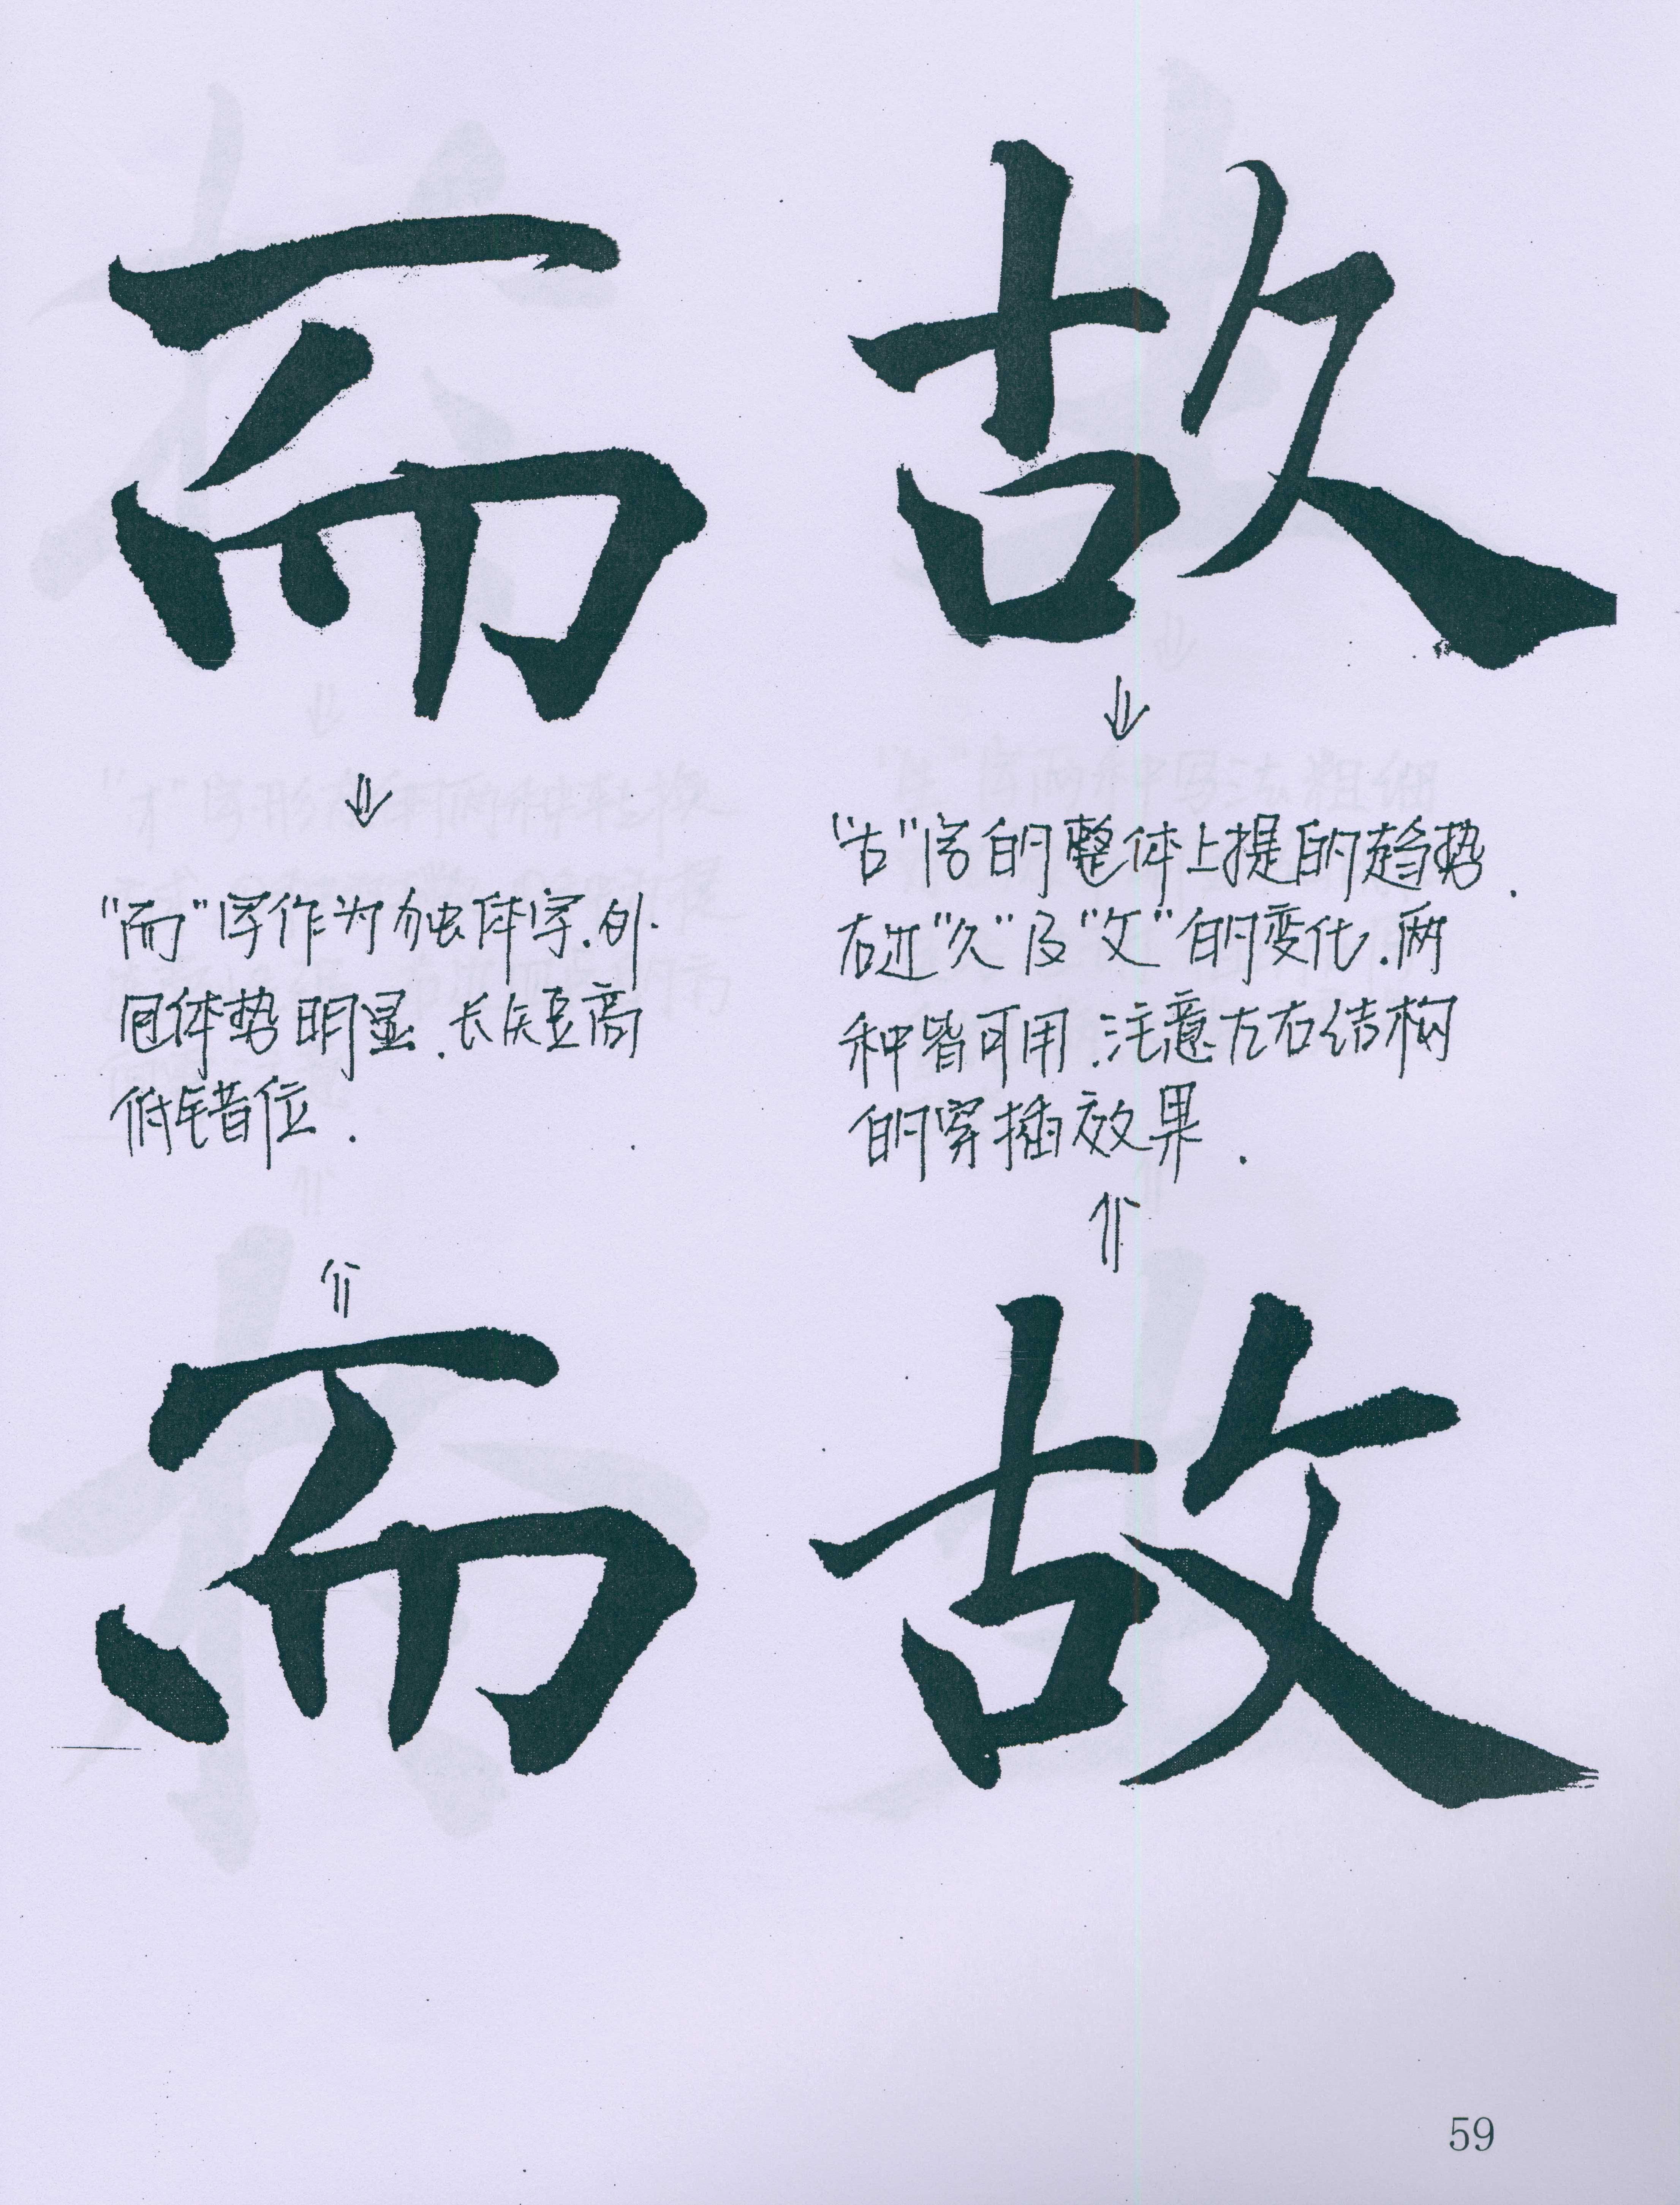 而 故
"古"字的整体上提的趋势.
右边"久"及"攵"的变化.两
种皆可用.注意左右结构
的穿插效果.
"而"字作为独体字.外
包体势明显.长短高
低错位.
而 故
59